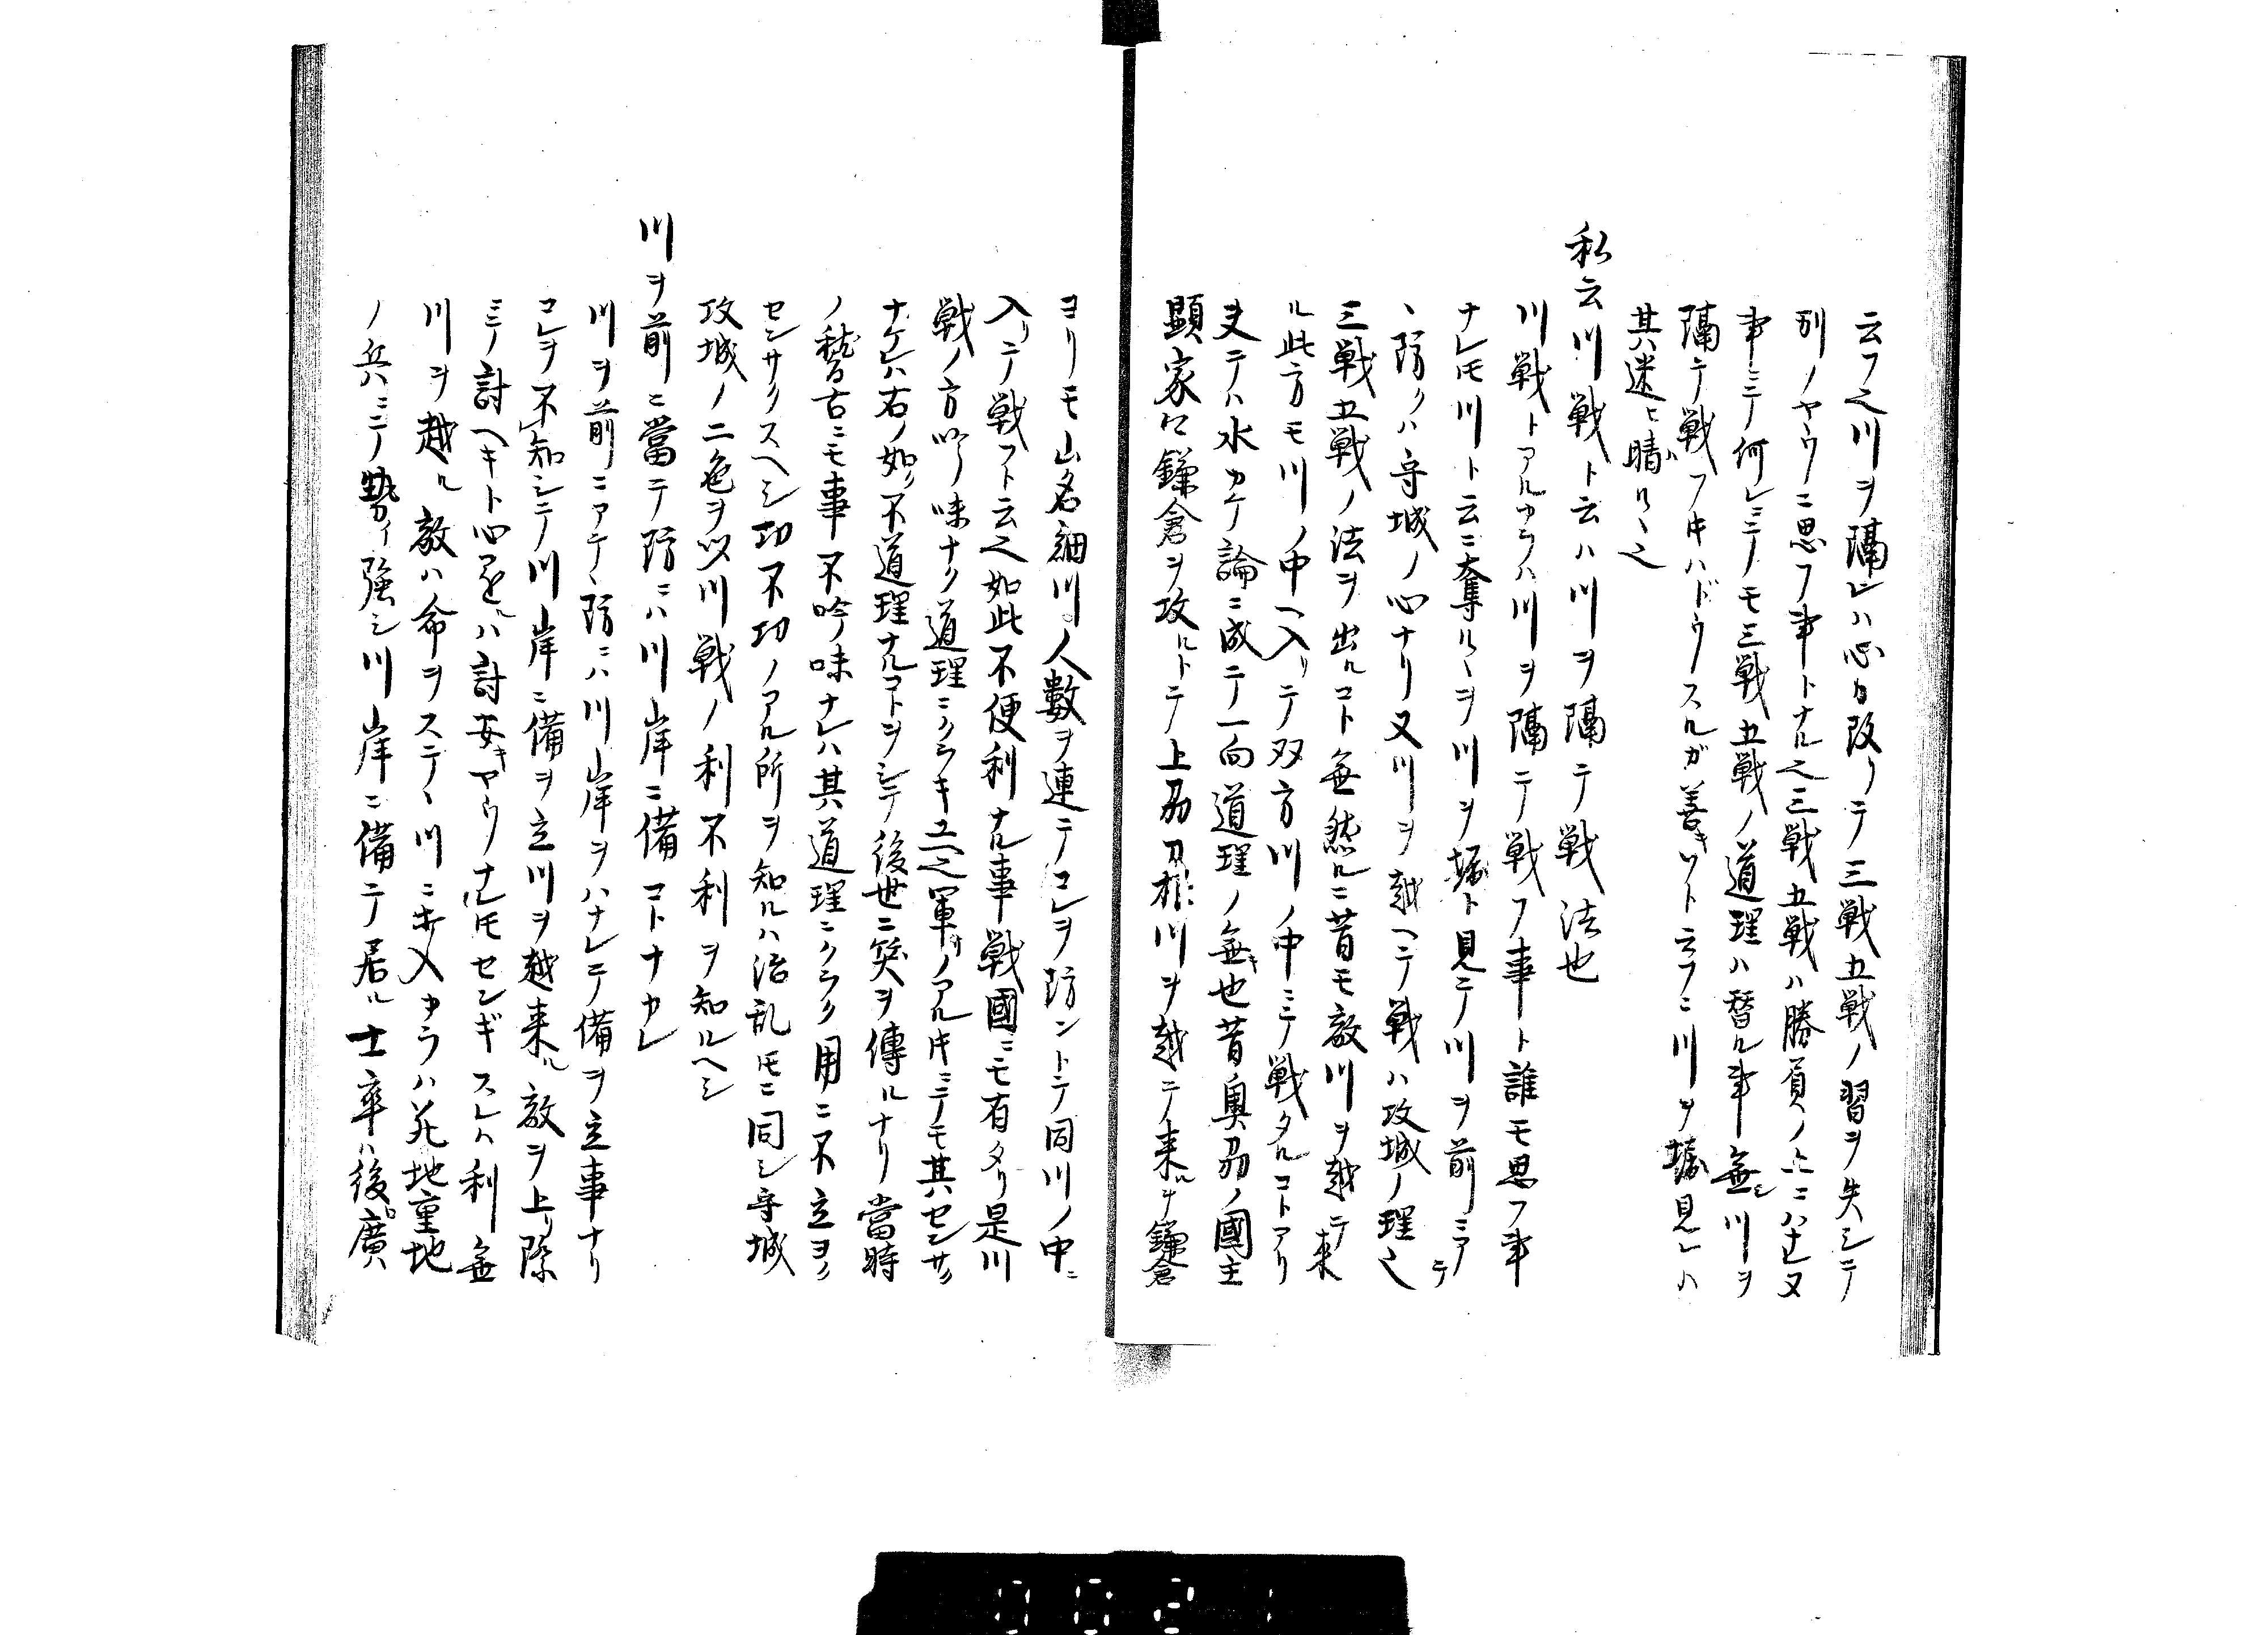 云フ之川ヲ隔レハ心カ改リテ三戦五戦ノ習ヲ失シテ
別ノヤウニ思フ事トナル之三戦五戦ハ勝負ノ上ニハナレ又
事ニテ何レニテモ三戦五戦ノ道理ハ替ル事無シ川ヲ
隔テ戦フキハドウスルガ善キソト云フニ川ヲ堀見レハ
其迷ヒ晴ルヽ之
私云川戦ト云ハ川ヲ隔テ戦法也
川戦トアルカラハ川ヲ隔テ戦フ事ト誰モ思フ事
ナレ𪜈川ト云ニ奪ルヽヲ川ヲ堀ト見テ川ヲ前ニアテ
ヽ防クハ守城ノ心ナリ又川ヲ越ヘテ戦ハ攻城ノ理之
三戦五戦ノ法ヲ出ルコト無然ルニ昔モ敵川ヲ越テ来
ル此方モ川ノ中ヘ入リテ双方川ノ中ニテ戦タルコトアリ
夫テハ水カケ論ニ成テ一向道理ノ無キ也昔奥刕ノ國主
顕家口鎌倉ヲ攻ルトテ上刕刀根川ヲ越テ来ルヲ鎌倉
ヨリモ山名細川人数ヲ連テコレヲ防ントテ同川ノ中ニ
入リテ戦フト云之如此不便利ナル事戦國ニモ有タリ是川
戦ノ方吟味ナク道理ニクラキユヘ之軍サノアルキニテモ其センサク
ナケレハ右ノ如ク不道理ナルコトヲシテ後世ニ笑ヲ傳ルナリ當時
ノ稽古ニモ事不吟味ナレハ其道理ニクラク用ニ不立ヨク
センサクスヘシ功不功ノアル所ヲ知ルハ治乱𪜈ニ同シ守城
攻城ノ二色ヲ以川戦ノ利不利ヲ知ルヘシ
川ヲ前ニ當テ防ニハ川岸ニ備コトナカレ
川ヲ前ニアテヽ防ニハ川岸ヲハナレテ備ヲ立事ナリ
コレヲ不知シテ川岸ニ備ヲ立川ヲ越来ル敵ヲ上リ際
ニテ討ヘキト心得ルハ討安キヤウナレ𪜈センギスレハ利無
川ヲ越ル敵ハ命ヲステヽ川ニ打入カラハ死地重地
ノ兵ニテ勢イ強シ川岸ニ備テ居ル士卒ハ後ロ廣